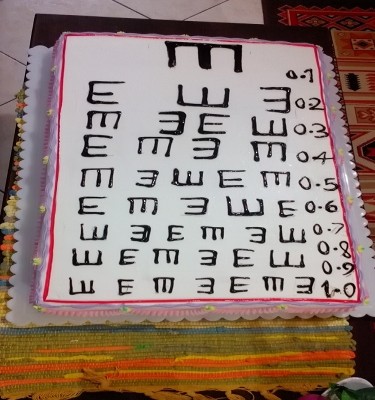 E 0.1
E E E 0.2
E E E E 0.3
E E E E 0.4
E E E E E 0.5
E E E E E 0.6
E E E E E E 0.7
E E E E E E 0.8
0.9
E E E E E E E 1.0